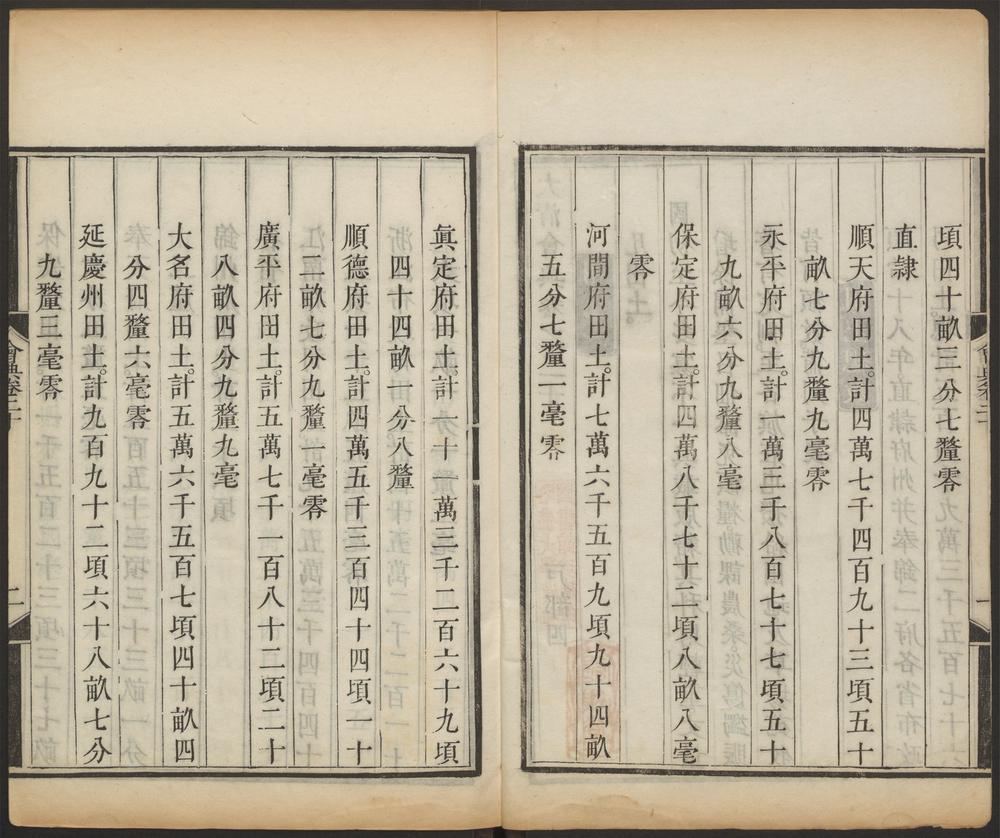 頃四十畝三分七釐零
直隸
順天府田土計四萬七千四百九十三頃五十
畝七分九釐九毫零
永平府田土計一萬三千八百七十七頃五十
九畝六分九釐八毫
保定府田土計四萬八千七十二頃八畝八毫
零
河間府田土計七萬六千五百九頃九十四畝
五分七釐一毫零
眞定府田土計一十一萬三千二百六十九頃
四十四畝一分八釐
順德府田土計四萬五千三百四十四頃一十
二畝七分九釐一毫零
廣平府田土計五萬七千一百八十二頃二十
八畝四分九釐九毫
大名府田土計五萬六千五百七頃四十畝四
分四釐六毫零
延慶州田土計九百九十二頃六十八畝七分
九釐三毫零
會典卷二十
二